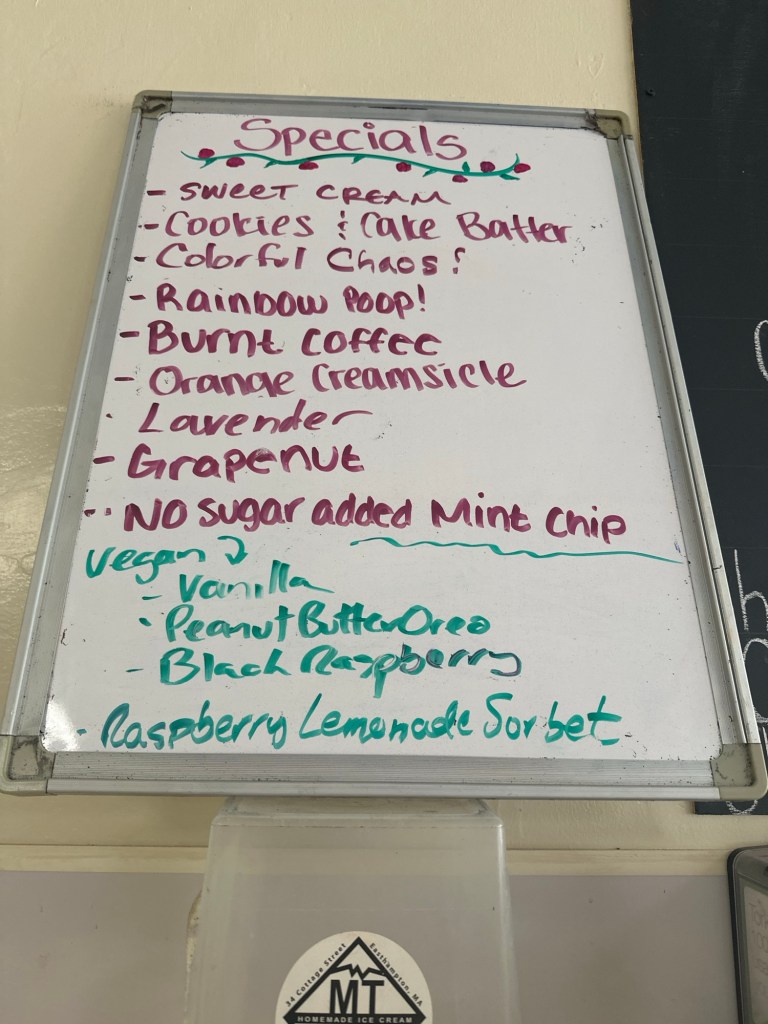 Specials
- SWEET CREAM
- Cookies & Cake Batter
- Colorful Chaos!
- Rainbow Poop!
- Burnt Coffee
- Orange Creamsicle
- Lavender
- Grapenut
- NO sugar added Mint Chip
Vegan
- Vanilla
- Peanut Butter Oreo
- Black Raspberry
- Raspberry Lemonade Sorbet
34 Cottage Street Easthampton, MA
MT
HOMEMADE ICE CREAM